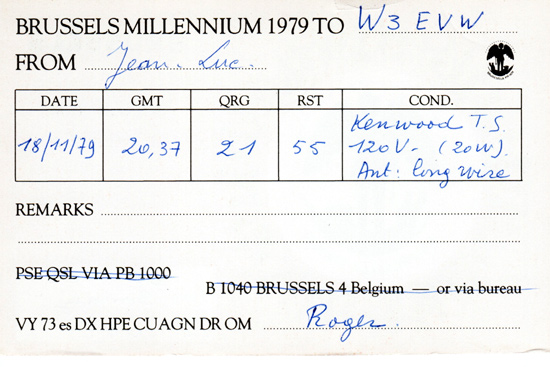 BRUSSELS MILLENNIUM 1979 TO W3EVW
FROM Jean-Luc.
DATE GMT QRG RST COND.
18/11/79 20,37 21 55 Kenwood T.S.
120V- (20W).
Ant: long wire
REMARKS
PSE QSL VIA PB 1000
B 1040 BRUSSELS 4 Belgium — or via bureau
VY 73 es DX HPE CUAGN DR OM Roger.